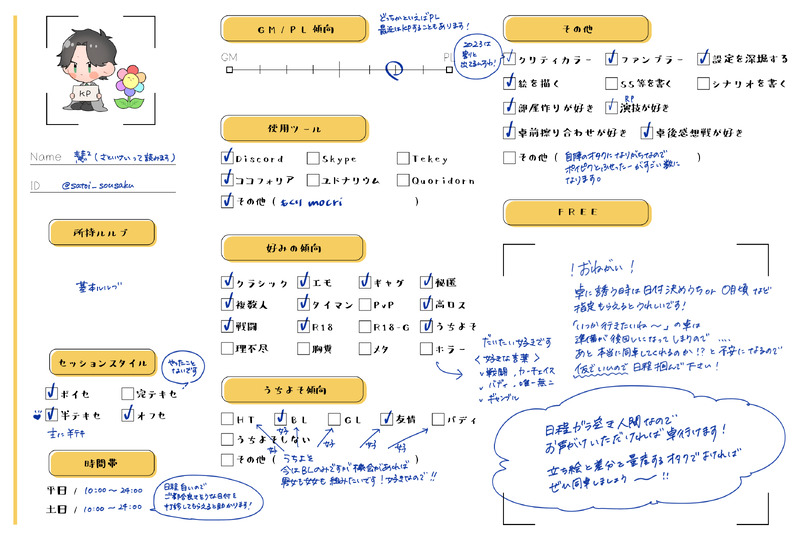 KP
Name
(さといけいって読みます)
ID @satoi_sousaku
所持ルルブ
"基本ルルブ"
セッションスタイル
やったことないです
✓ボイセ □完テキセ
✓半テキセ ✓オフセ
主に半テキ
時間帯
平日 / 10:00〜24:00
土日 / 10:00〜24:00
日程白いので
ご都合良さそうな日付を
打診してもらえると助かります!
GM/PL傾向
どっちかといえばPL
最近はKPすることもあります!
GM PL
使用ツール
✓Discord □Skype □Tekey
✓ココフォリア □ユドナリウム □Quoridorn
✓その他 ( もくり mocri )
好みの傾向
✓クラシック ✓エモ ✓ギャグ ✓秘匿
✓複数人 ✓タイマン □PvP ✓高ロス
✓戦闘 ✓R18 □R18-G ✓うちよそ
□理不尽 □胸糞 □メタ □ホラー
だいたい好きです
<好きな言葉>
・戦闘 ・カーチェイス
・バディ ・唯一無二
・ギャンブル
うちよそ傾向
□HT ✓BL □GL ✓友情 □バディ
□うちよそしない
好き 好き 好き 好き
□その他 ( うちよそ
今はBLのみですが機会があれば
男女も女女も組みたいです!好きなので!!
その他
2023は
割と
出てますわ!
✓クリティカラー ✓ファンブラー ✓設定を深堀する
✓絵を描く □SS等を書く □シナリオを書く
✓部屋作りが好き ✓演技が好き
RP
✓卓前擦り合わせが好き ✓卓後感想戦が好き
□その他 ( 自陣のオタクになりがちなので
ポイピクとふせったーがすごい数に
なります。 )
FREE
!おねがい!
卓に誘う時は日付決めうち or 〇月頃 など
指定もらえるとうれしいです!
「いつか行きたいね〜」の卓は
準備が後回しになってしまうので ....
あと本当に同卓してくれるのか!?と不安になるので
仮でいいので日程掴んで下さい!
日程ガラ空き人間なので
お声がけいただければ卓行けます!
立ち絵と差分を量産するオタクでよければ
ぜひ同卓しましょう〜!!